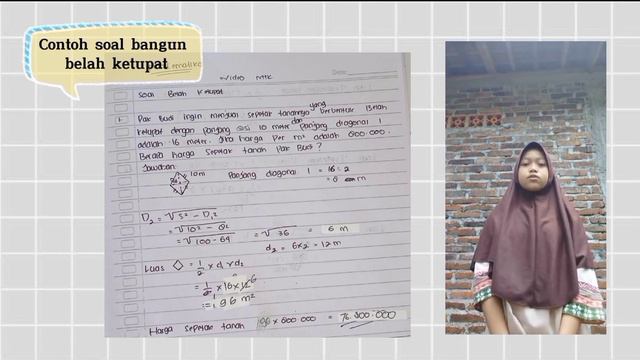 Contoh soal bangun
belah ketupat
Video MTK
Date:
Soal Belah Ketupat
1. Pak Budi ingin menjual sepetak tanahnya yang berbentuk Belah
ketupat dengan panjang sisi 10 meter dan Panjang diagonal 1
adalah 16 meter. Jika harga per m² adalah 800.000.
Berapa harga sepetak tanah Pak Budi?
Jawaban
10m Panjang diagonal 1 = 16 : 2
= 8 m
D₂ = √S² - D₁²
= √10² - 8²
= √100 - 64 = √36 = 6 m
d₂ = 6x2 = 12 m
Luas ◇ = 1/2 x d₁ x d₂
= 1/2 x 16 x 12 6
= 96 m²
Harga sepetak tanah 96 x 800.000 = 76.800.000